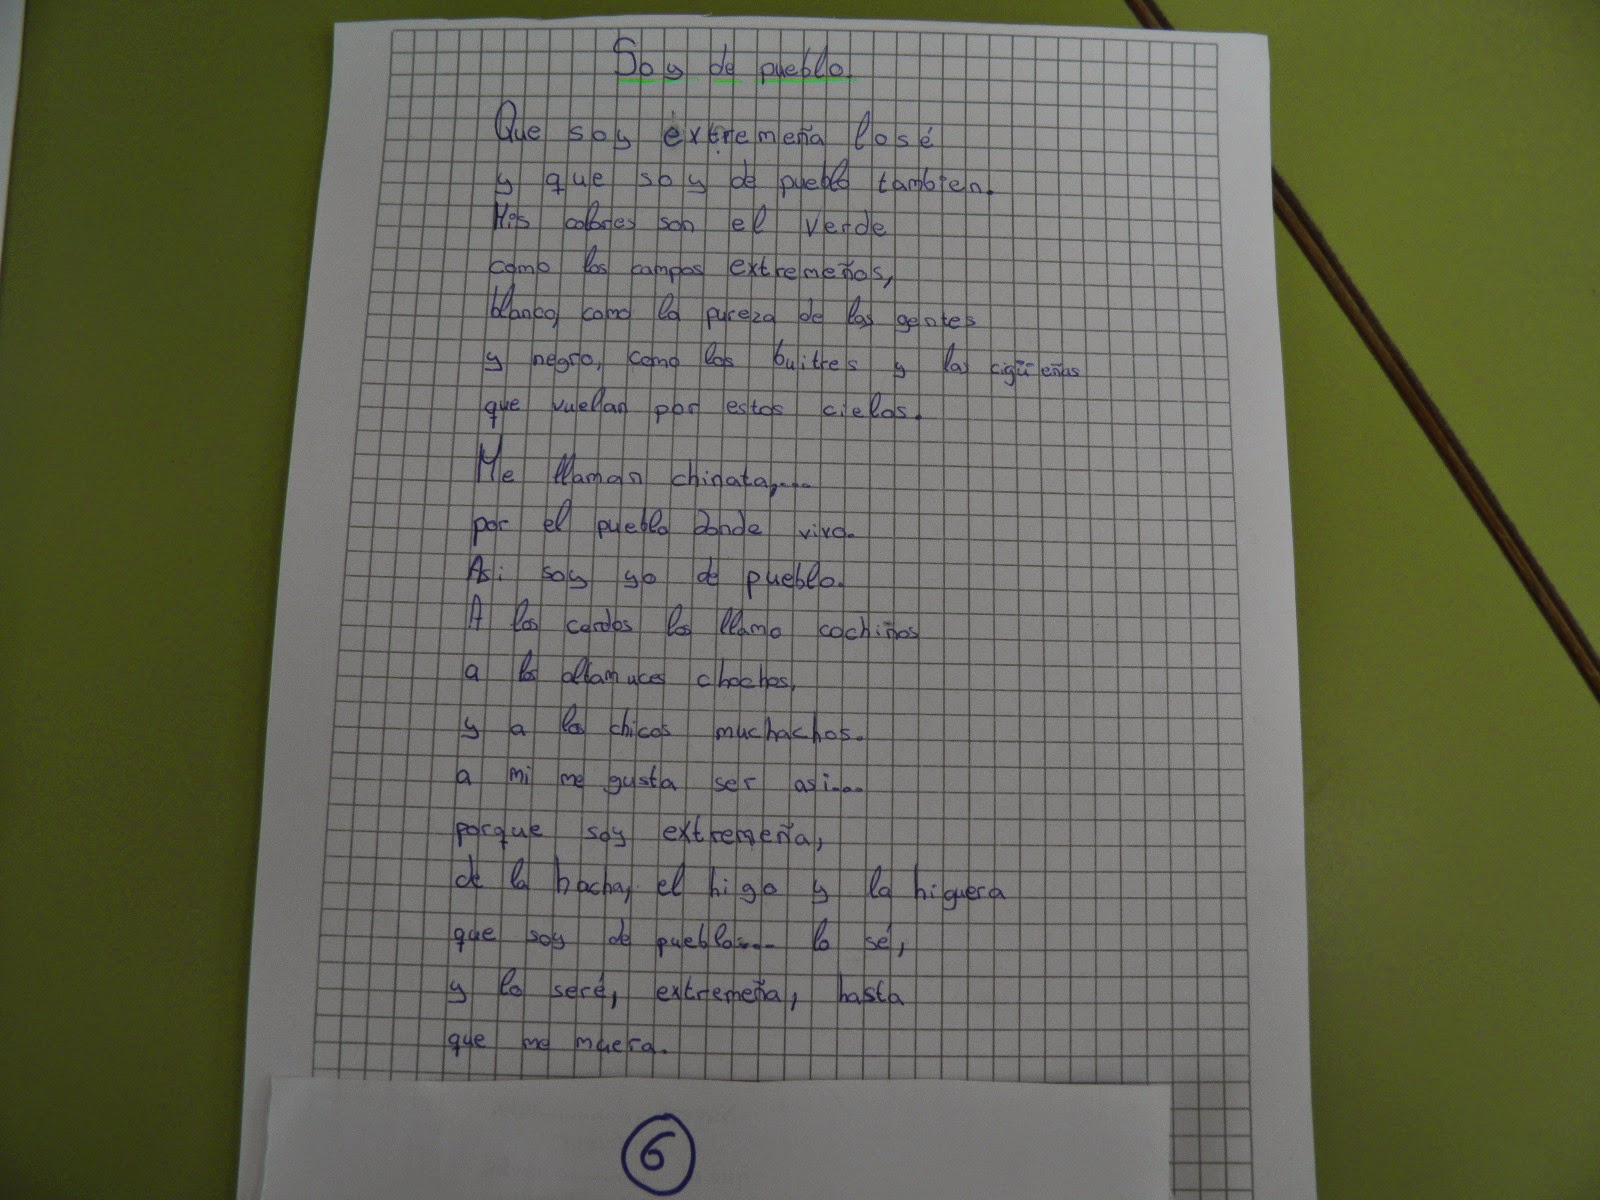 Soy de pueblo.
Que soy extremeña losé
y que soy de pueblo tambien.
Mis colores son el verde
como los campos extremeños,
blanco, como la pureza de las gentes
y negro, como los buitres y las cigüeñas
que vuelan por estos cielos.
Me llaman chinata,...
por el pueblo donde vivo.
Asi soy yo de pueblo.
A los cerdos los llamo cochinos
a los altamuces chochos,
y a los chicos muchachos.
a mi me gusta ser asi...
porque soy extremeña,
de la hacha, el higo y la higuera
que soy de pueblo... lo sé,
y lo seré, extremeña, hasta
que me muera.
6